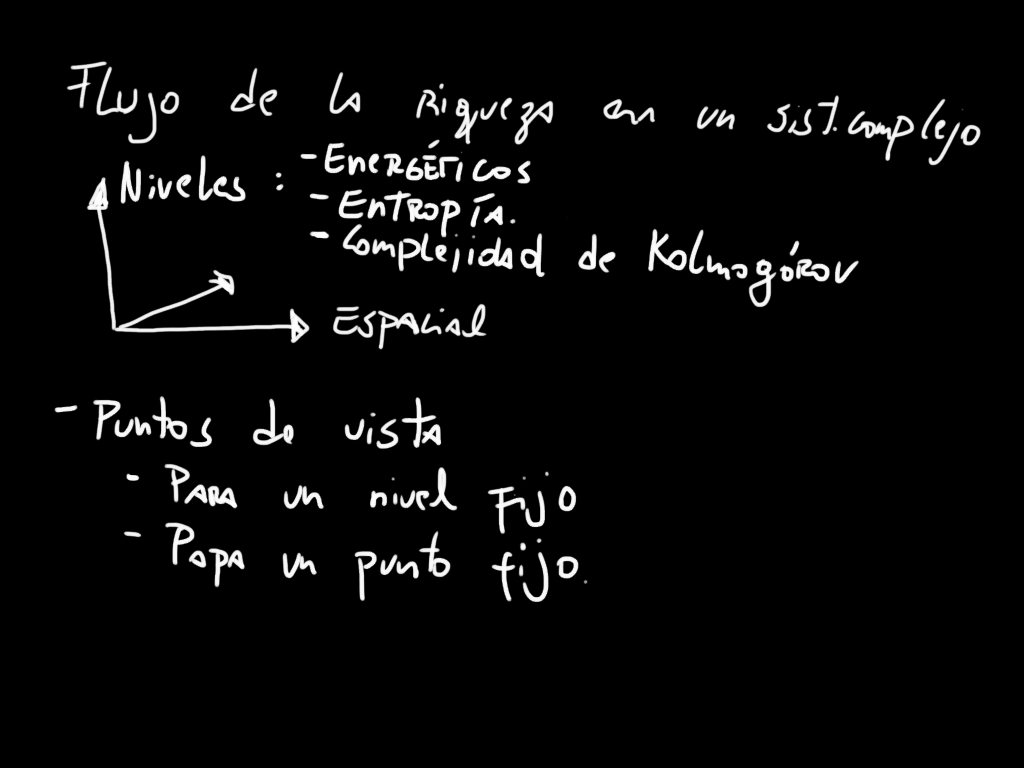 Flujo de la Riqueza en un sist. complejo
Niveles : - ENERGÉTICOS
- ENTROPÍA.
- Complejidad de Kolmogórov
ESPACIAL
- Puntos de vista
- PARA un nivel Fijo
- PAPA un punto fijo.